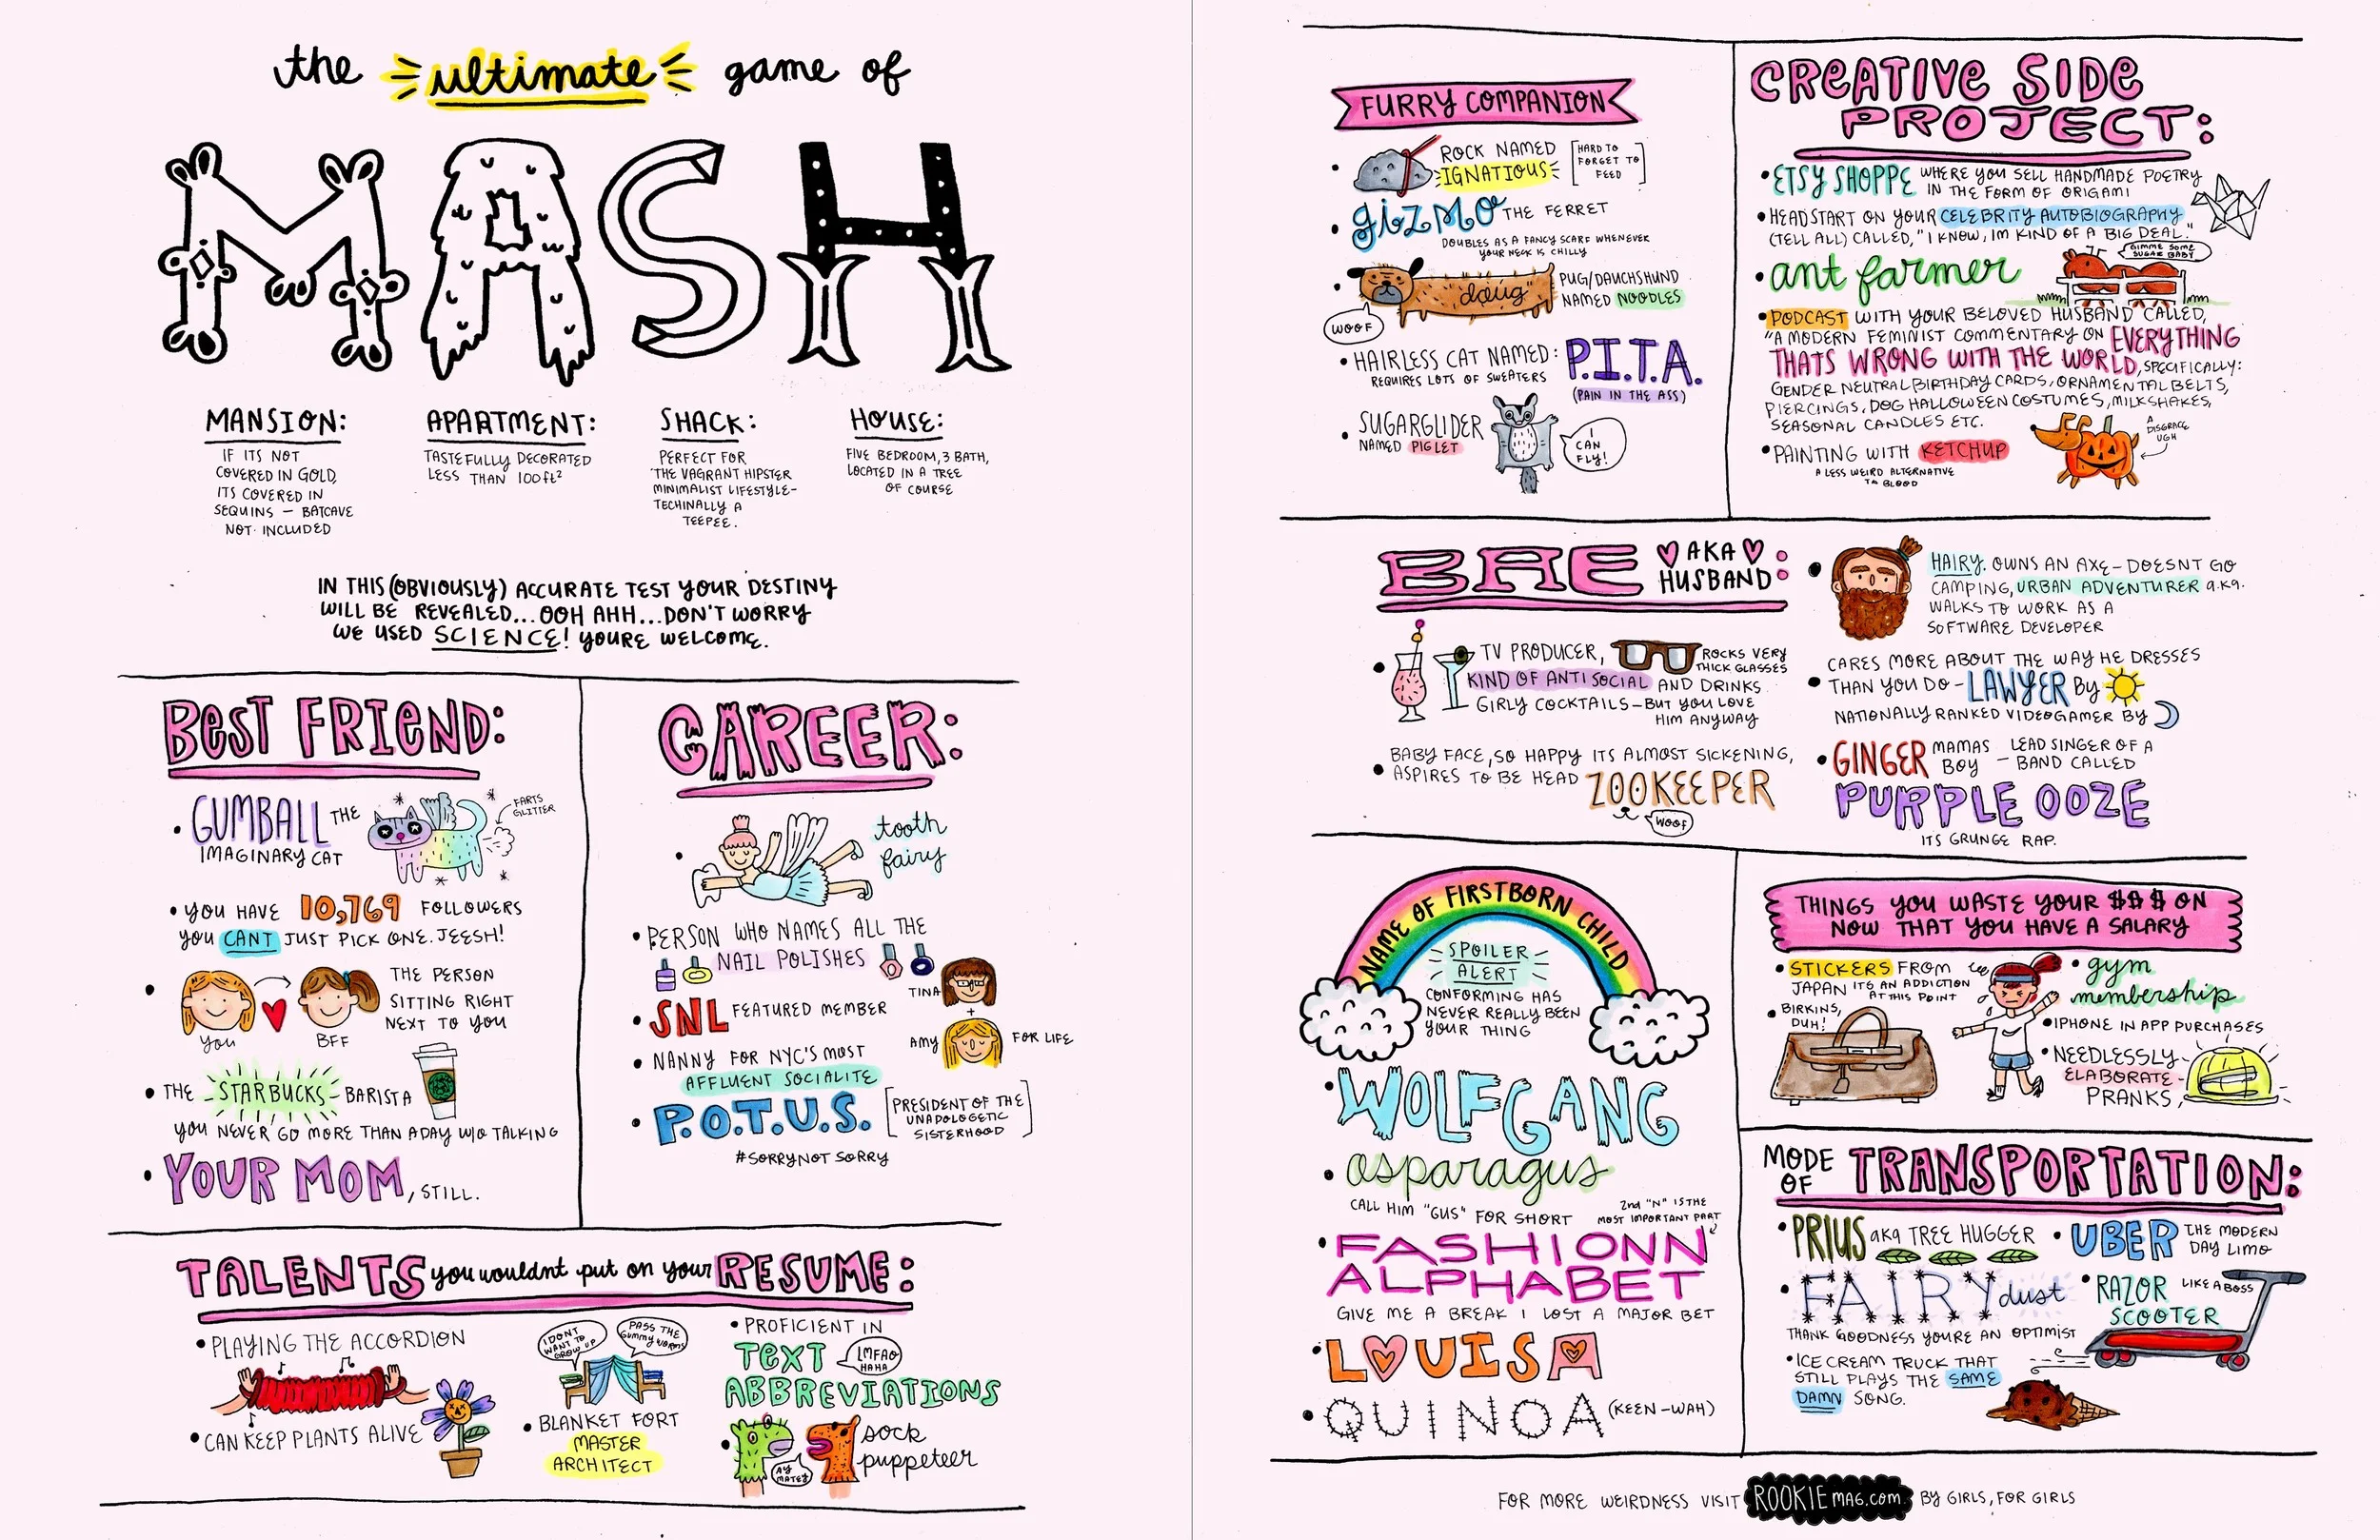 the ultimate game of
MASH
MANSION:
IF ITS NOT
COVERED IN GOLD,
ITS COVERED IN
SEQUINS — BATCAVE
NOT INCLUDED
APARTMENT:
TASTEFULLY DECORATED
LESS THAN 100ft²
SHACK:
PERFECT FOR
THE VAGRANT HIPSTER
MINIMALIST LIFESTYLE-
TECHINALLY A
TEEPEE.
HOUSE:
FIVE BEDROOM, 3 BATH,
LOCATED IN A TREE
OF COURSE
IN THIS (OBVIOUSLY) ACCURATE TEST YOUR DESTINY
WILL BE REVEALED... OOH AHH... DON'T WORRY
WE USED SCIENCE! YOURE WELCOME.
BEST FRIEND:
• GUMBALL THE
IMAGINARY CAT
FARTS
GLITTER
• YOU HAVE 10,769 FOLLOWERS
YOU CANT JUST PICK ONE. JEESH!
• THE PERSON
SITTING RIGHT
NEXT TO YOU
YOU
BFF
• THE STARBUCKS BARISTA
YOU NEVER GO MORE THAN A DAY W/O TALKING
• YOUR MOM, STILL.
CAREER:
• tooth
fairy
• PERSON WHO NAMES ALL THE
NAIL POLISHES
• SNL FEATURED MEMBER
TINA
+
AMY
FOR LIFE
• NANNY FOR NYC'S MOST
AFFLUENT SOCIALITE
• P.O.T.U.S. [PRESIDENT OF THE
UNAPOLOGETIC
SISTERHOOD]
#SORRYNOTSORRY
TALENTS you wouldnt put on your RESUME:
• PLAYING THE ACCORDION
• CAN KEEP PLANTS ALIVE
I DONT
WANT TO
GROW UP
PASS THE
GUMMY WORMS
• BLANKET FORT
MASTER
ARCHITECT
• PROFICIENT IN
TEXT
ABBREVIATIONS
LMFAO
HAHA
• sock
puppeteer
AY
MATEY
FURRY COMPANION
• ROCK NAMED
IGNATIOUS
[HARD TO
FORGET TO
FEED]
• GIZMO THE FERRET
DOUBLES AS A FANCY SCARF WHENEVER
YOUR NECK IS CHILLY
• PUG/DAUCHSHUND
NAMED NOODLES
WOOF
• HAIRLESS CAT NAMED: P.I.T.A.
REQUIRES LOTS OF SWEATERS
(PAIN IN THE ASS)
• SUGARGLIDER
NAMED PIGLET
I
CAN
FLY!
CREATIVE SIDE
PROJECT:
• ETSY SHOPPE WHERE YOU SELL HANDMADE POETRY
IN THE FORM OF ORIGAMI
• HEADSTART ON YOUR CELEBRITY AUTOBIOGRAPHY
(TELL ALL) CALLED, "I KNOW, IM KIND OF A BIG DEAL."
• ant farmer
GIMME SOME
SUGAR BABY
• PODCAST WITH YOUR BELOVED HUSBAND CALLED,
"A MODERN FEMINIST COMMENTARY ON EVERYTHING
THATS WRONG WITH THE WORLD, SPECIFICALLY:
GENDER NEUTRAL BIRTHDAY CARDS, ORNAMENTAL BELTS,
PIERCINGS, DOG HALLOWEEN COSTUMES, MILKSHAKES,
SEASONAL CANDLES ETC.
A
DISGRACE
UGH
• PAINTING WITH KETCHUP
A LESS WEIRD ALTERNATIVE
TO BLOOD
BAE AKA
HUSBAND:
• TV PRODUCER, ROCKS VERY
THICK GLASSES
KIND OF ANTI SOCIAL AND DRINKS
GIRLY COCKTAILS — BUT YOU LOVE
HIM ANYWAY
• BABY FACE, SO HAPPY ITS ALMOST SICKENING,
ASPIRES TO BE HEAD ZOOKEEPER
WOOF
• HAIRY. OWNS AN AXE — DOESNT GO
CAMPING, URBAN ADVENTURER a.k.a.
WALKS TO WORK AS A
SOFTWARE DEVELOPER
• CARES MORE ABOUT THE WAY HE DRESSES
THAN YOU DO — LAWYER BY
NATIONALLY RANKED VIDEOGAMER BY
• GINGER MAMAS BOY — LEAD SINGER OF A
BAND CALLED
PURPLE OOZE
ITS GRUNGE RAP.
NAME OF FIRSTBORN CHILD
SPOILER
ALERT
CONFORMING HAS
NEVER REALLY BEEN
YOUR THING
• WOLFGANG
• asparagus
CALL HIM "GUS" FOR SHORT
2nd "N" IS THE
MOST IMPORTANT PART
• FASHIONN
ALPHABET
GIVE ME A BREAK I LOST A MAJOR BET
• LOUISA
• QUINOA (KEEN-WAH)
THINGS YOU WASTE YOUR $$$ ON
NOW THAT YOU HAVE A SALARY
• STICKERS FROM
JAPAN ITS AN ADDICTION
AT THIS POINT
• BIRKINS,
DUH!
• gym
membership
• IPHONE IN APP PURCHASES
• NEEDLESSLY
ELABORATE
PRANKS
MODE
OF TRANSPORTATION:
• PRIUS aka TREE HUGGER
• UBER THE MODERN
DAY LIMO
• FAIRY dust
THANK GOODNESS YOURE AN OPTIMIST
• RAZOR
SCOOTER
LIKE A BOSS
• ICE CREAM TRUCK THAT
STILL PLAYS THE SAME
DAMN SONG.
FOR MORE WEIRDNESS VISIT ROOKIEMAG.COM BY GIRLS, FOR GIRLS